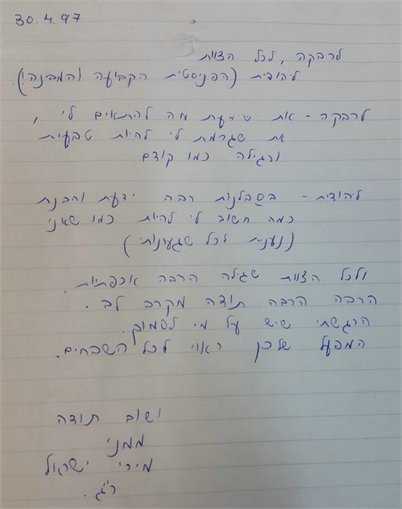 30.4.97
לרבקה, לכל הצוות
ליהודית (הפניסטית הקביעה והמבינה!).
לרבקה - את שידעת מה להתאים לי,
את שגרמת לי להיות טבעית
ורגילה כמו קודם
ליהודית - בסבלנות רבה ידעת והבנת
כמה חשוב לי להיות כמו שאני
(נענית לכל שגעונותי)
ולכל הצוות שגילה הרבה אכפתיות.
הרבה הרבה תודה מקרב לב.
הרגשתי שיש על מי לסמוך.
המפעל שלכן ראוי לכל השבחים.
ושוב תודה
ממני
מירי ישראל
ר"ג.